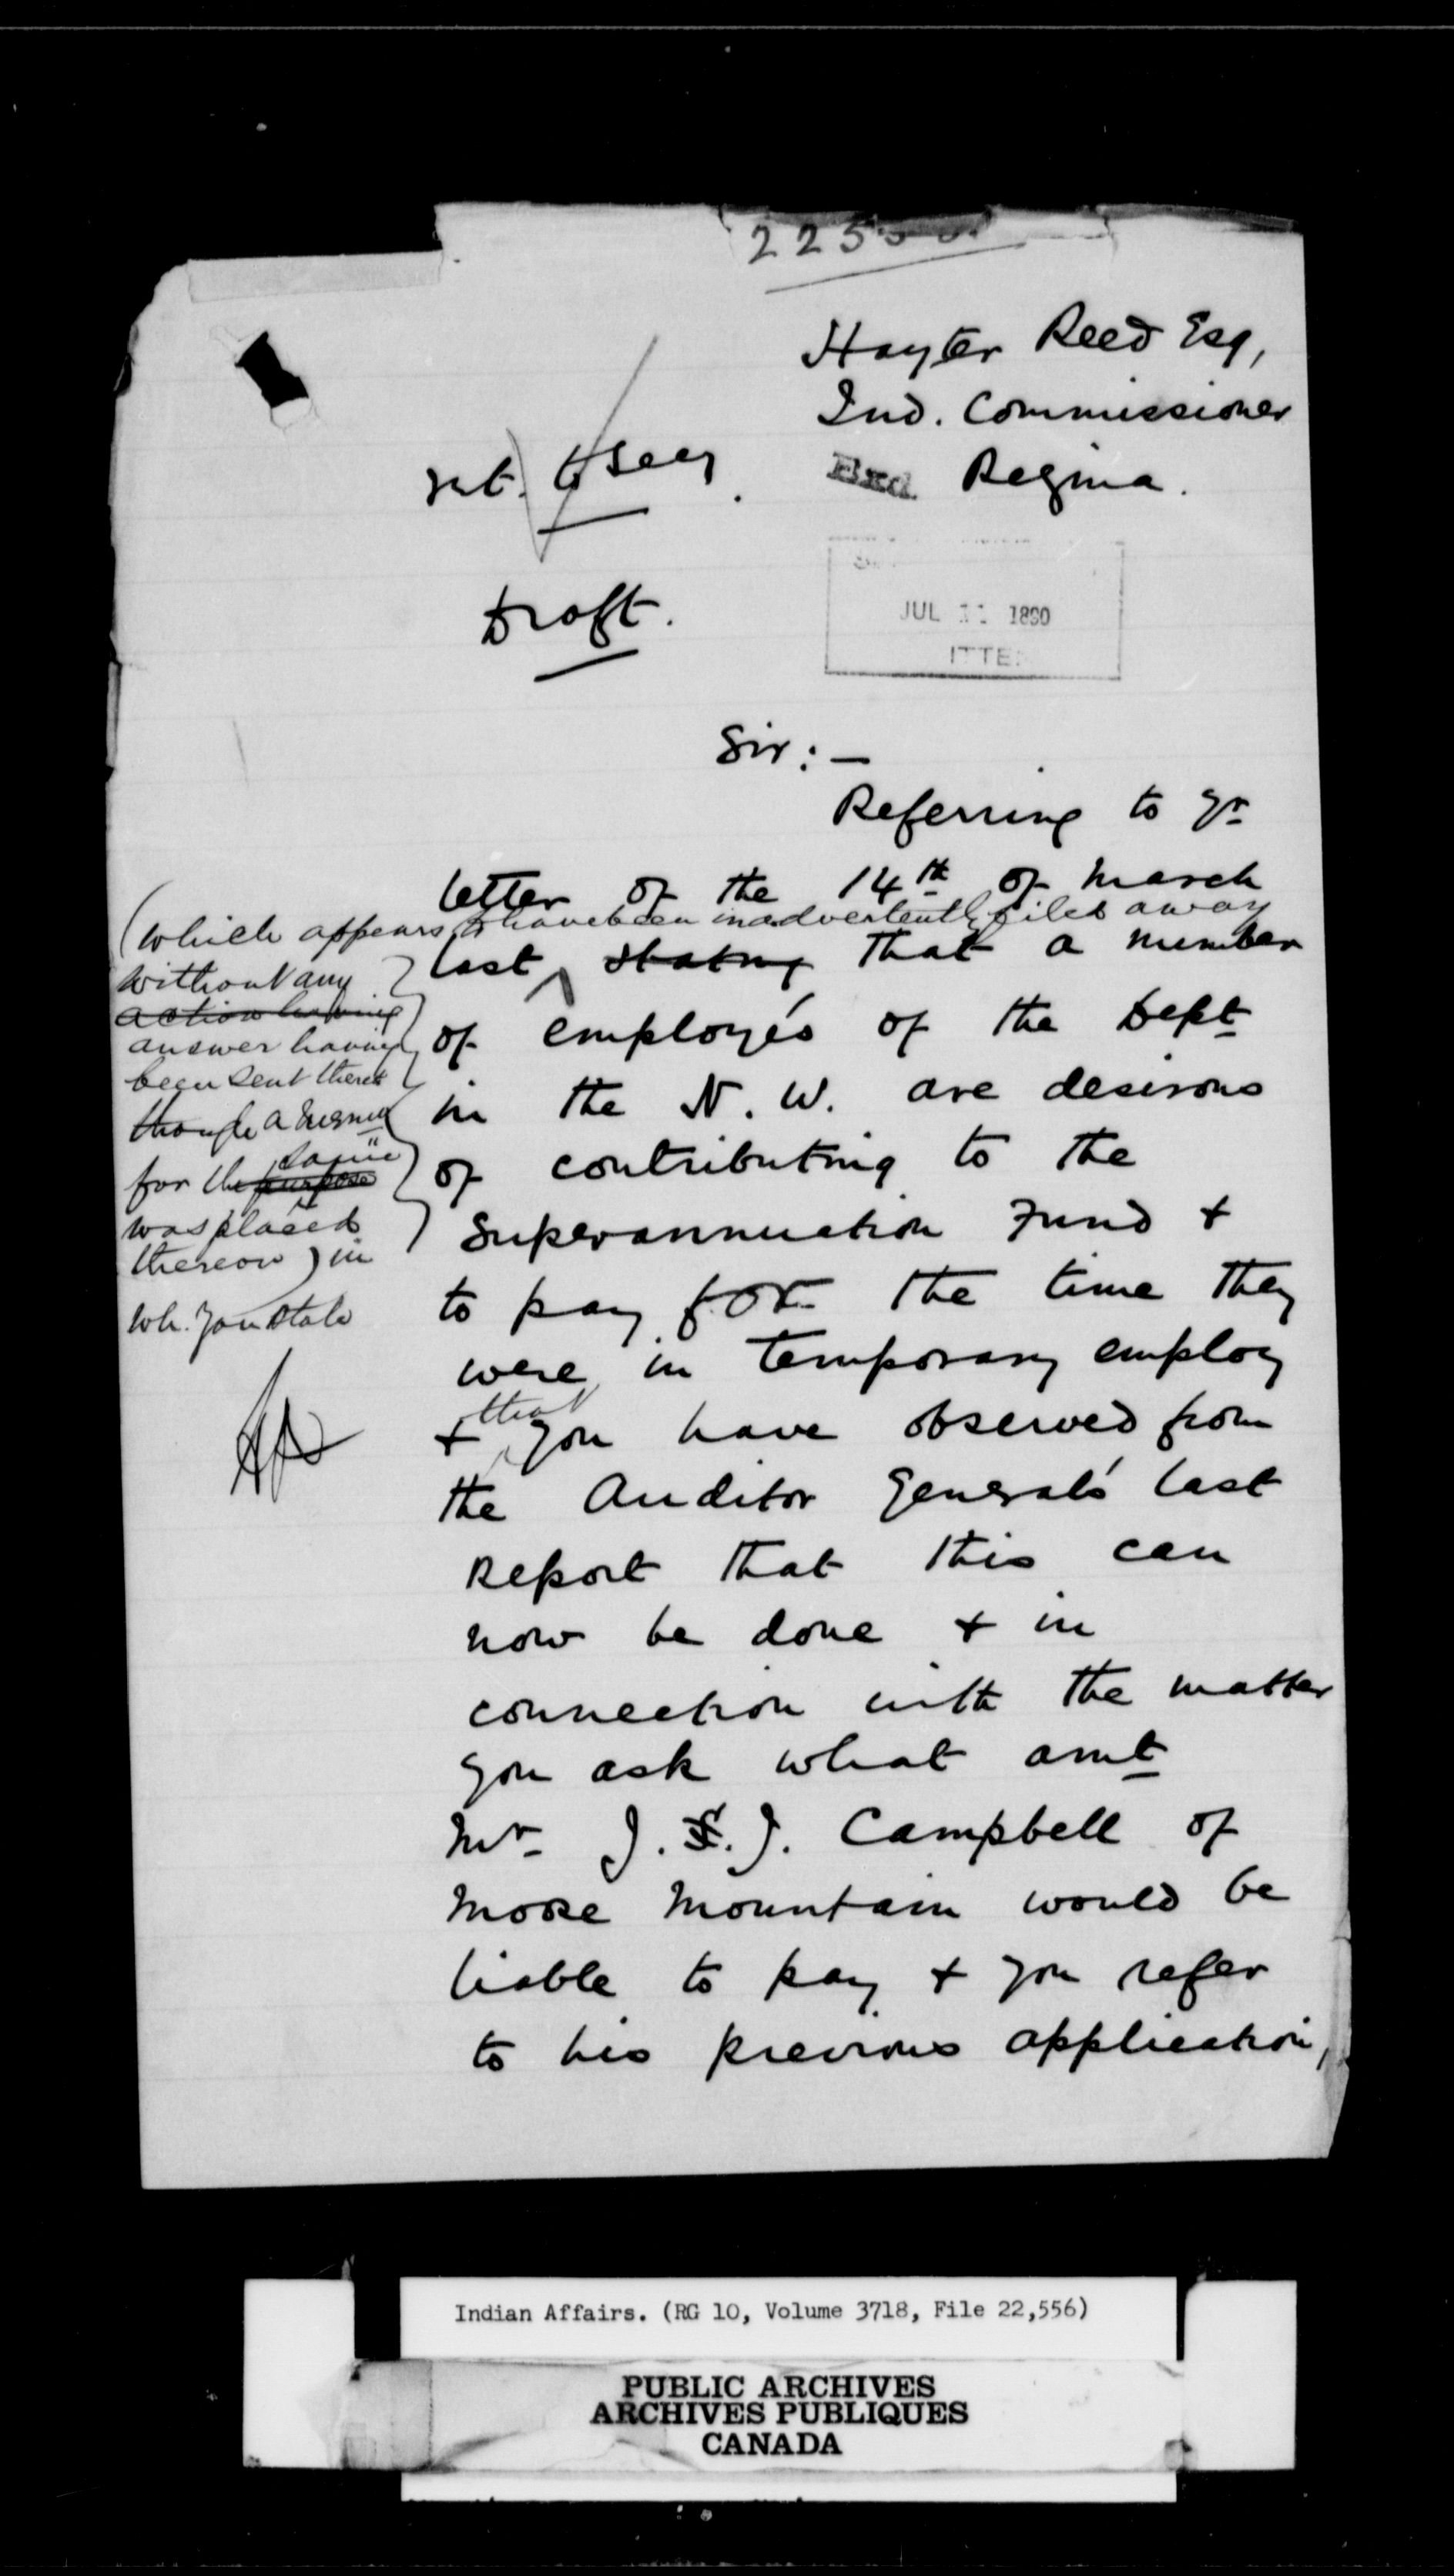 225
Hayter Reed Esq,
Ind. Commissioner
Exd. Regina.
Draft.
JUL 1890
Sir:—
Referring to yr
letter of the 14th of March
(which appears to have been inadvertently filed away
last, stating that a number
without any
action having
of employés of the Dept
answer having
been sent thereto
in the N. W. are desirous
though a
for the purpose same
of contributing to the
was placed
Superannuation Fund +
thereon) in
to pay for the time they
wh. you state
were in temporary employ
+ that you have observed from
the Auditor General's last
Report that this can
now be done + in
connection with the matter
you ask what amt
Mr J. J. Campbell of
Moose Mountain would be
liable to pay + you refer
to his previous application,
Indian Affairs. (RG 10, Volume 3718, File 22,556)
PUBLIC ARCHIVES
ARCHIVES PUBLIQUES
CANADA